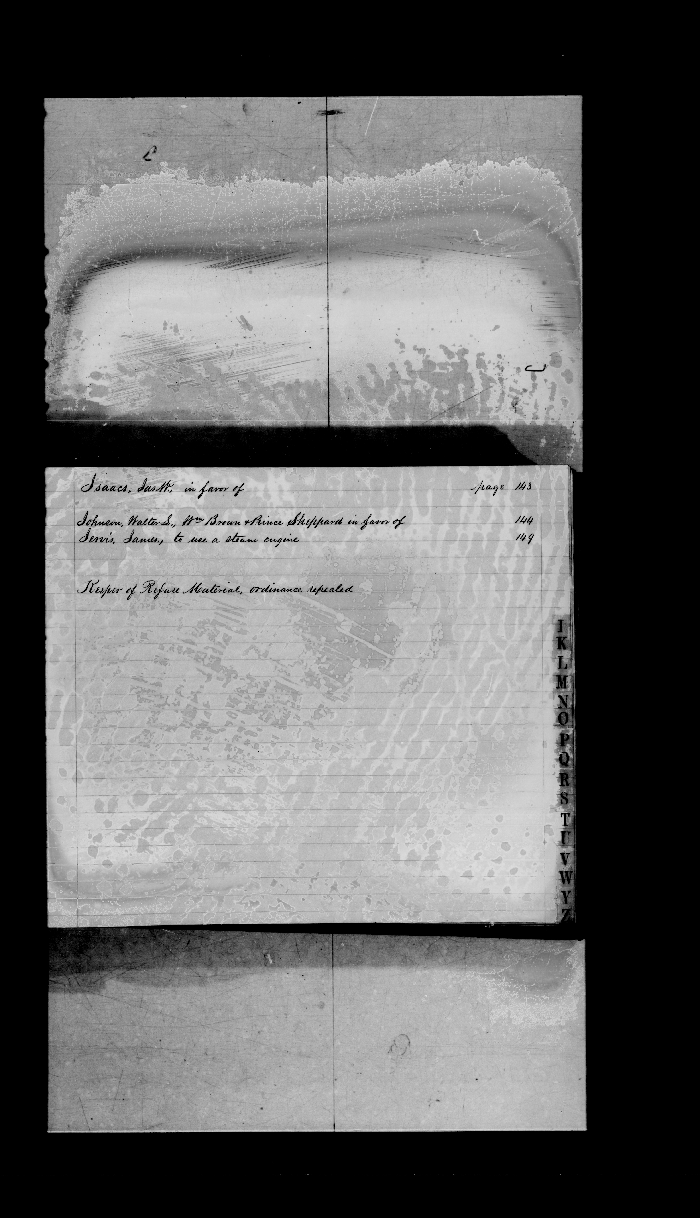 Isaacs, Jas. W., in favor of page 143
Johnson, Walter S., Wm Brown & Prince Sheppard in favor of 144
Jervis, James, to use a steam engine 149
Keeper of Refuse Material, ordinance repealed
I
K
L
M
N
O
P
Q
R
S
T
U
V
W
Y
Z